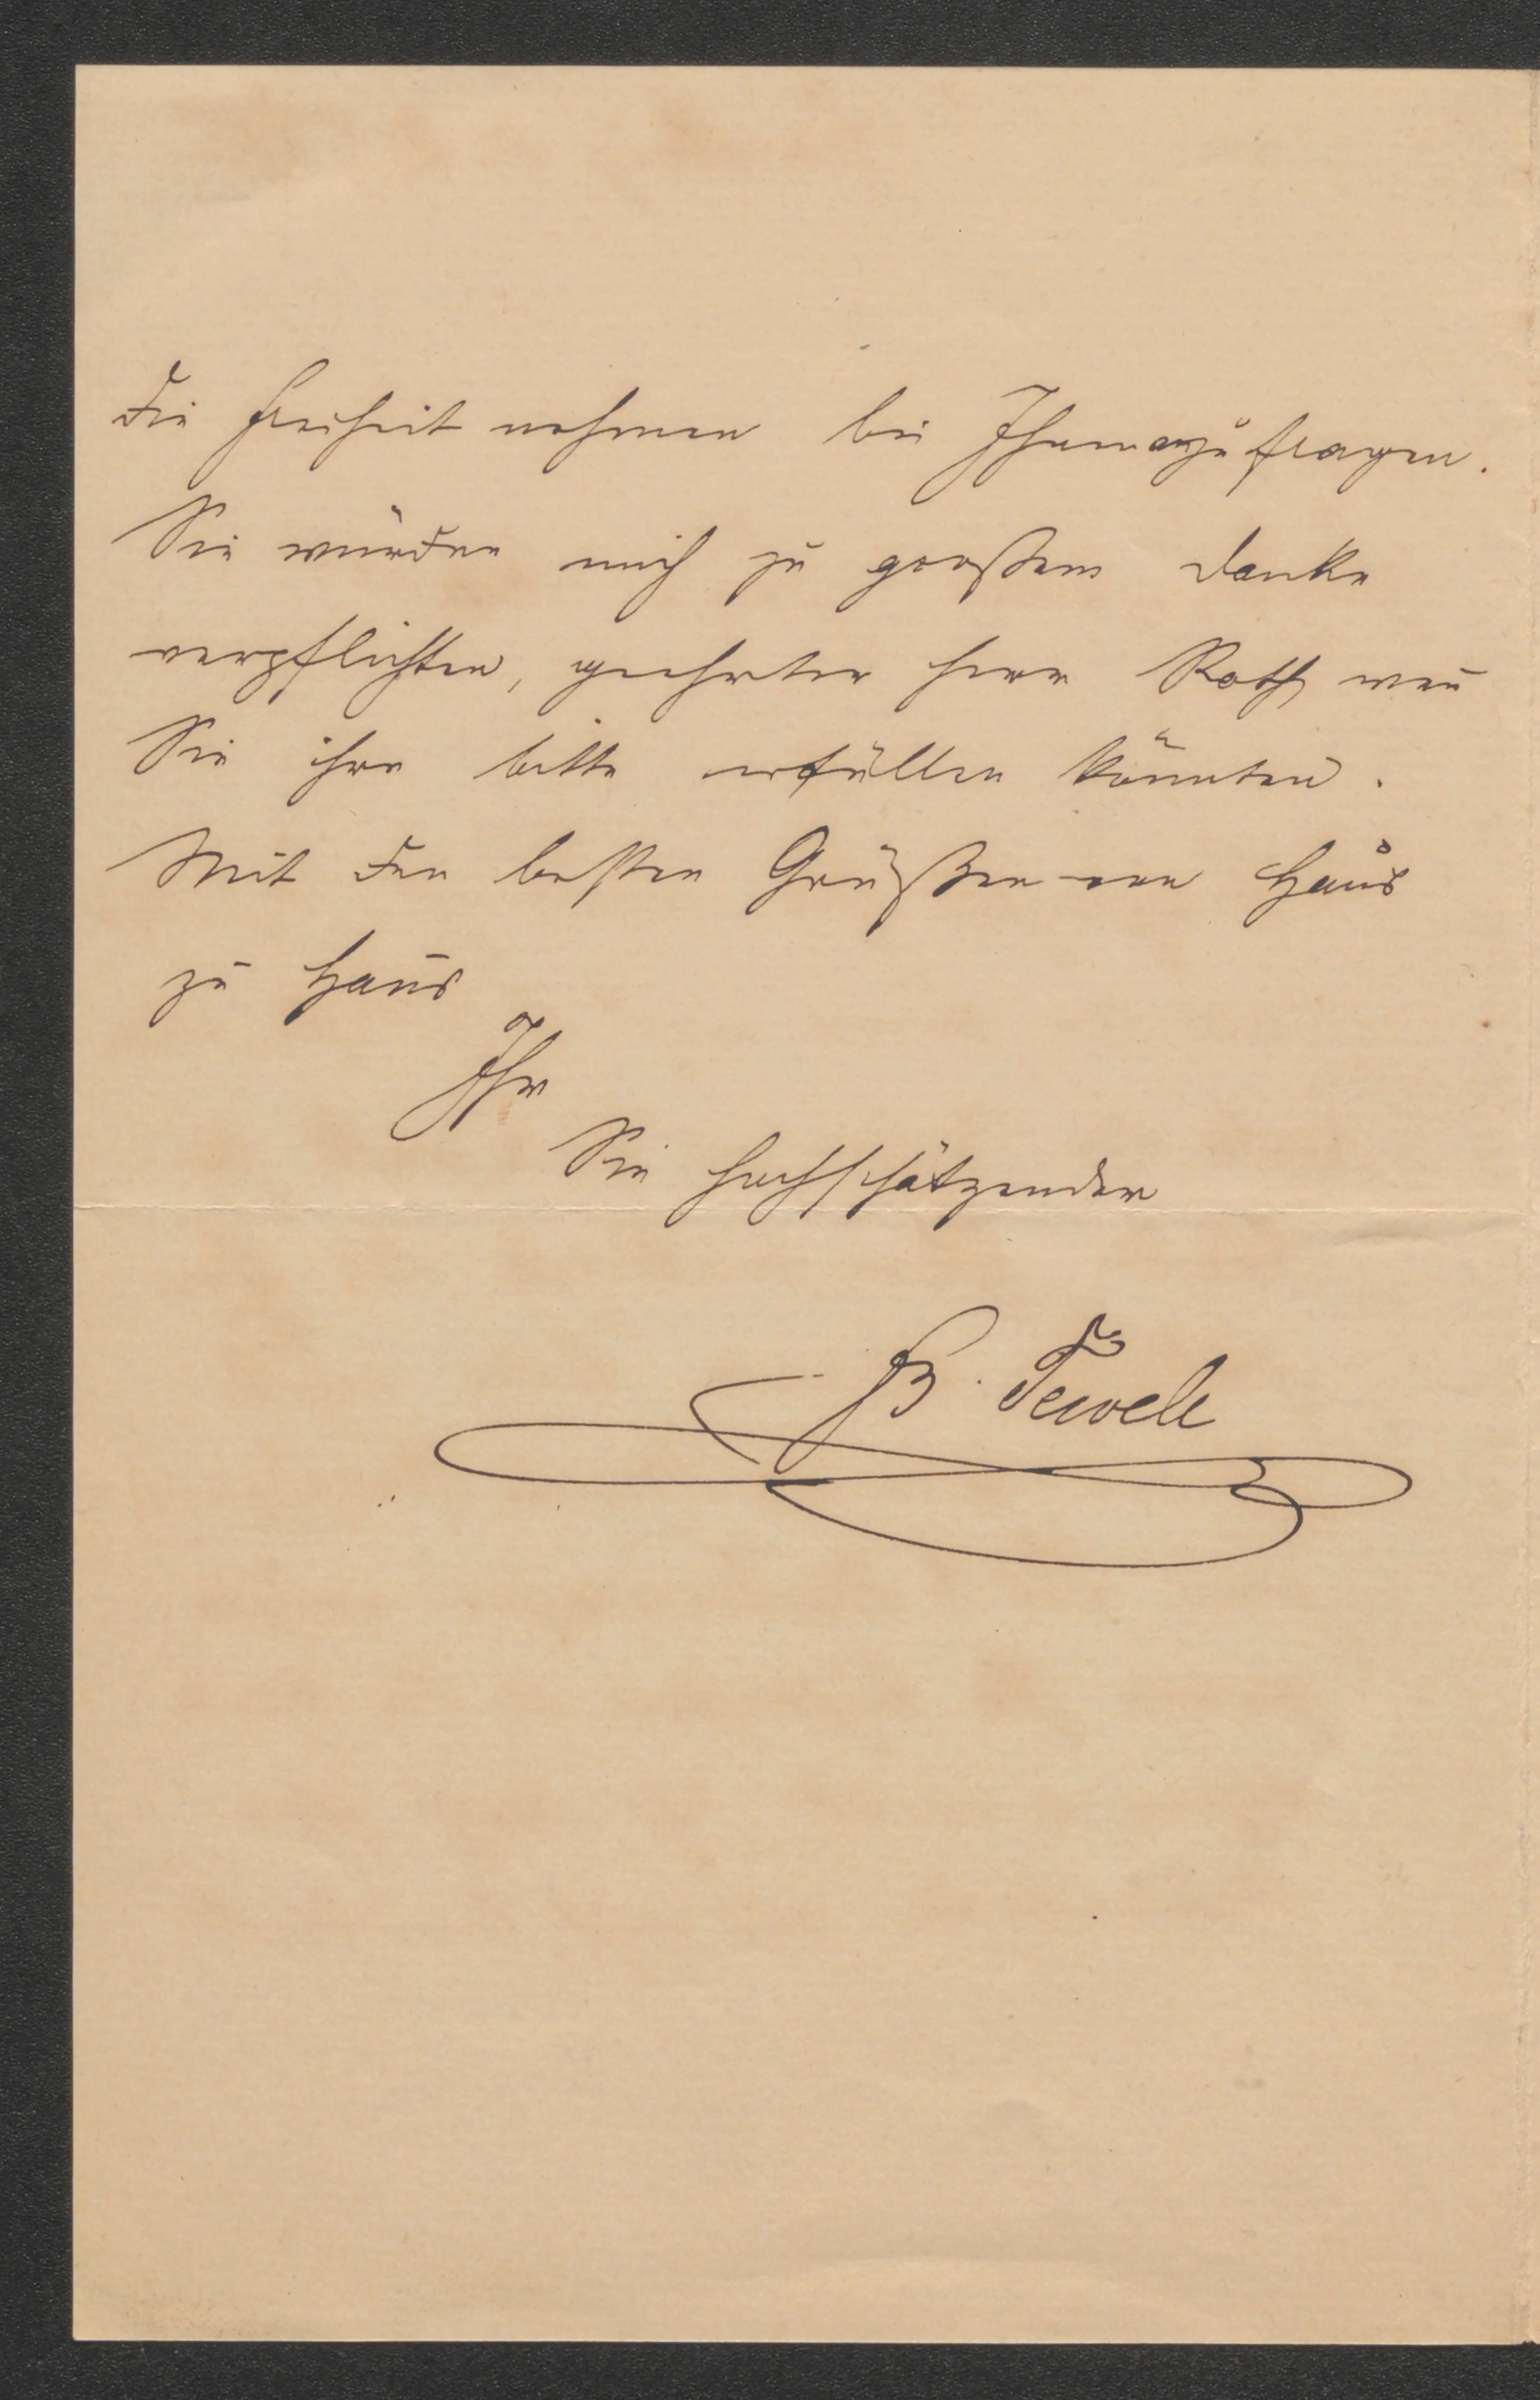 die Freiheit nehmen bei Ihnen anzufragen.
Sie würden mich zu großem Danke
verpflichten, geehrter Herr Roth, wen̄
Sie ihre bitte erfüllen könnten.
Mit den besten Grüßen von Haus
zu Haus
Ihr
Sie hochschätzender
B. Tewele